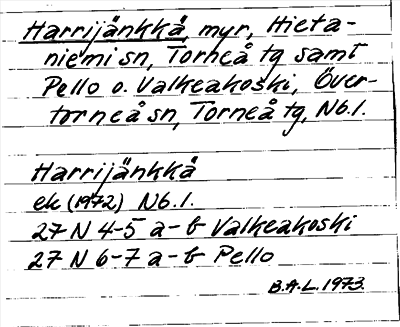 Harrijänkkä, myr, Hieta-
niemi sn, Torneå tg samt
Pello o. Valkeakoski, Över-
torneå sn, Torneå tg, Nb.l.
Harrijänkkä
ek (1972) Nb.l.
27 N 4-5 a-b Valkeakoski
27 N 6-7 a-b Pello
B.A.L. 1973.